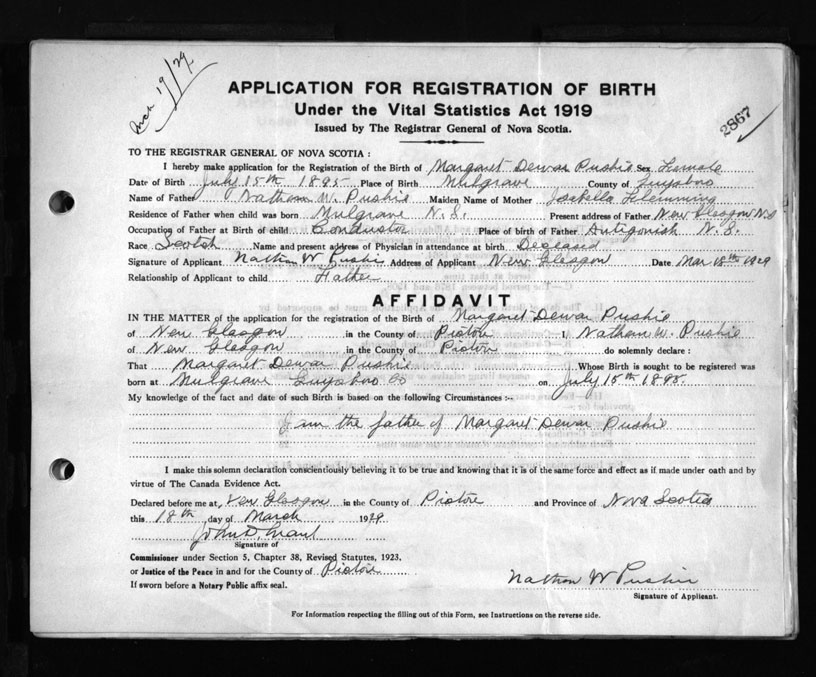 March 19/29
APPLICATION FOR REGISTRATION OF BIRTH
Under the Vital Statistics Act 1919
2867
Issued by The Registrar General of Nova Scotia.
TO THE REGISTRAR GENERAL OF NOVA SCOTIA :
I hereby make application for the Registration of the Birth of Margaret Dewar Pushie Sex Female
Date of Birth July 15th 1895 Place of Birth Mulgrave County of Guysboro
Name of Father Nathan W. Pushie Maiden Name of Mother Isabella Flemming
Residence of Father when child was born Mulgrave N.S. Present address of Father New Glasgow N.S
Occupation of Father at Birth of child Conductor Place of birth of Father Antigonish N.S.
Race Scotch Name and present address of Physician in attendance at birth Deceased
Signature of Applicant Nathan W Pushie Address of Applicant New Glasgow Date Mar 18th 1929
Relationship of Applicant to child Father
AFFIDAVIT
IN THE MATTER of the application for the registration of the Birth of Margaret Dewar Pushie
of New Glasgow in the County of Pictou I, Nathan W. Pushie
of New Glasgow in the County of Pictou do solemnly declare :
That Margaret Dewar Pushie Whose Birth is sought to be registered was
born at Mulgrave Guysboro Co on July 15th 1895.
My knowledge of the fact and date of such Birth is based on the following Circumstances :-
I am the father of Margaret Dewar Pushie
I make this solemn declaration conscientiously believing it to be true and knowing that it is of the same force and effect as if made under oath and by
virtue of The Canada Evidence Act.
Declared before me at New Glasgow in the County of Pictou and Province of Nova Scotia
this 18th day of March 1929
John D.
Signature of
Commissioner under Section 5, Chapter 38, Revised Statutes, 1923.
or Justice of the Peace in and for the County of Pictou
If sworn before a Notary Public affix seal.
Nathan W Pushie
Signature of Applicant.
For Information respecting the filling out of this Form, see Instructions on the reverse side.